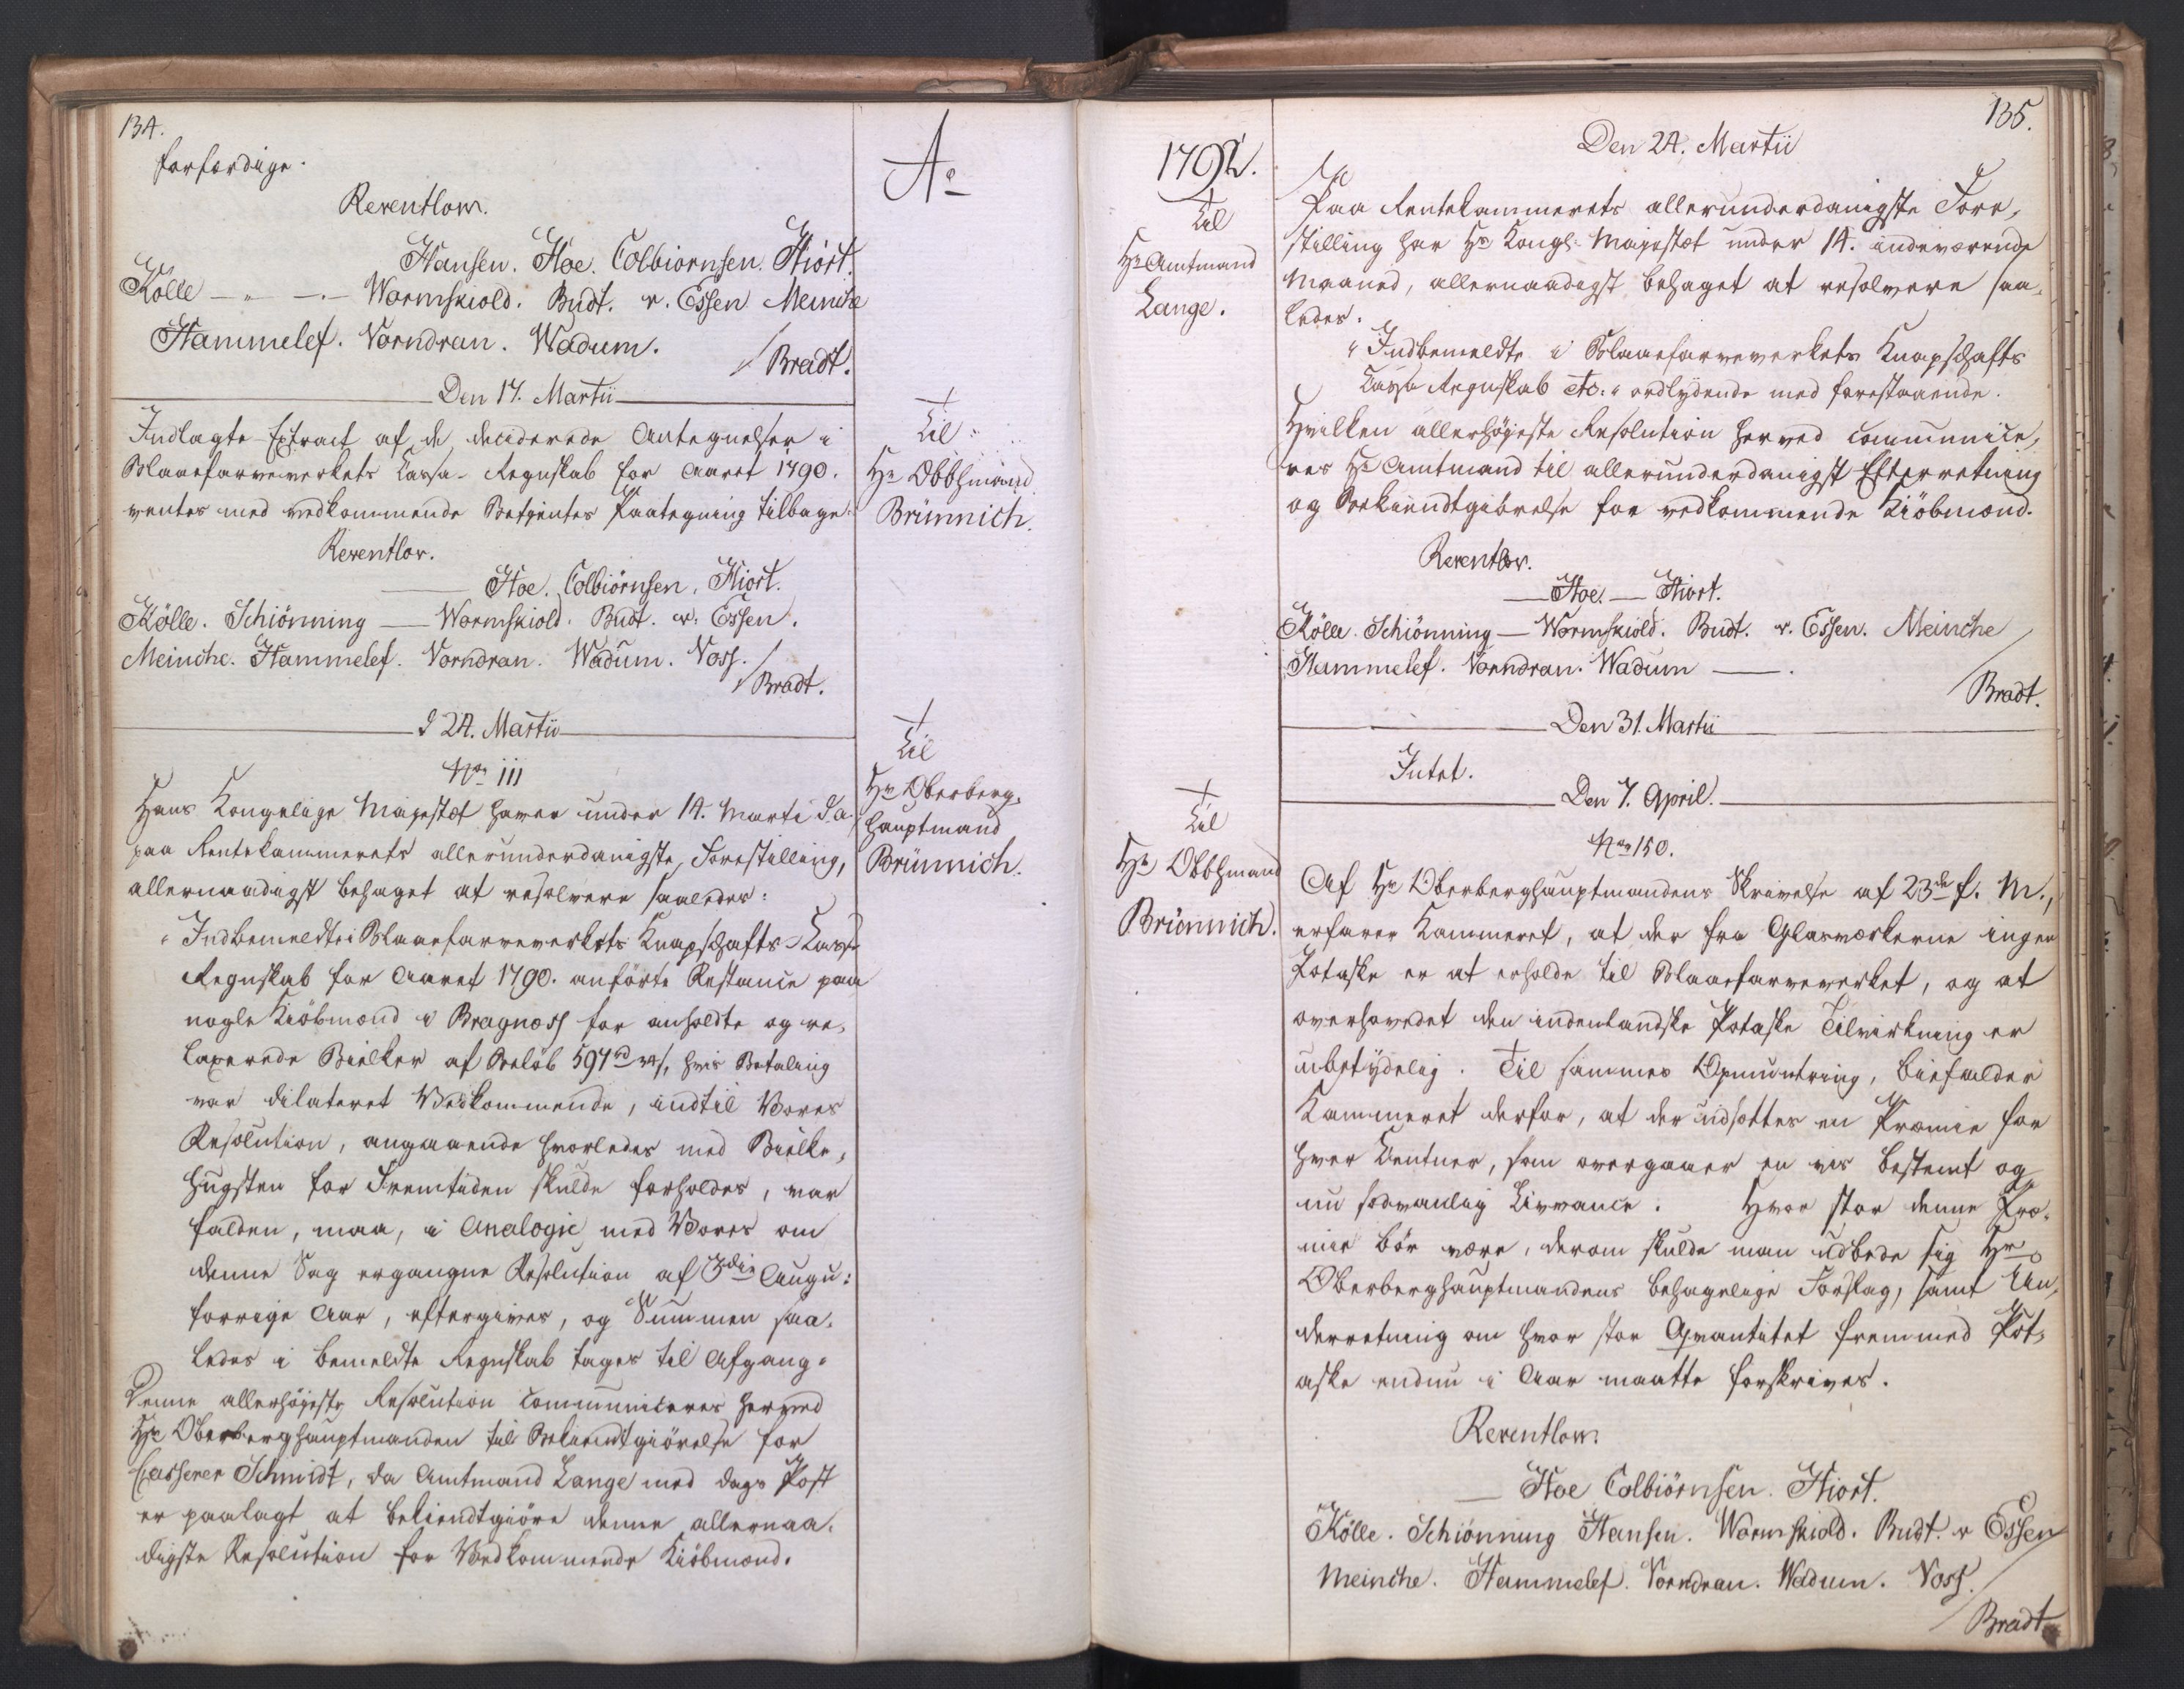 134.
forfærdige.
Reventlow.
Hansen. Hoe. Colbiornsen. Hiort.
Kölle — " — . — Wormskiold. Budt. v. Essen Meinche
Hammelef. Vorndran. Wadum.
/ Bradt.
Den 17. Martii
Indlagte Extract af de deciderede Antegnelser i
Blaaefarveverkets Cassa-Regnskab for Aaret 1790.
ventes med vedkommende Betjentes Paategning tilbage.
Reventlov.
— Hoe. Colbiörnsen. Hiort.
Kölle. Schiönning — Wormskiold. Budt. v. Essen.
Meinche. Hammelef. Vorndran. Wadum. Voss.
/ Bradt.
d 24. Martii
No 111
Hans Kongelige Majestæt haver under 14. Marti d. a.
paa Rentekammerets allerunderdanigste Forestilling,
allernaadigst behaget at resolvere saaledes:
"Indbemeldte i Blaaefarveverkets Knapschafts-Cassa
Regnskab for Aaret 1790. anförte Restance paa
nogle Kiöbmænd i Bragnæss for anholdte og re-
laxerede Bielker af Belöb 597 rd 24 s, hvis Betaling
var dilateret Vedkommende, indtil Vores
Resolution, angaaende hvorledes med Bielke-
hugsten for Fremtiden skulde forholdes, var
falden, maa, i Analogie med Vores om
denne Sag ergangne Resolution af 3die Augu:
forrige Aar, eftergives, og Summen saa-
ledes i bemeldte Regnskab tages til Afgang"
Denne allerhöjeste Resolution communiceres herved
Hr Oberberghauptmanden til Bekiendtgiörelse for
Casserer Schmidt, da Amtmand Lange med Dags Post
er paalagt at bekiendtgiöre denne allernaa-
digste Resolution for Vedkommende Kiöbmænd.
Ao
Til
Hr Obbhmand
Brünnich.
Til
Hr Oberberg-
hauptmand
Brünnich.
1792.
Til
Hr Amtmand
Lange.
Til
Hr Obbhmand
Brünnich.
135.
Den 24. Martii
Paa Rentekammerets allerunderdanigste Fore-
stilling har Hs Kongl: Majestæt under 14. indeværende
Maaned, allernaadigst behaget at resolvere saa-
ledes:
"Indbemeldte i Blaaefarveverkets Knapschafts
Cassa Regnskab etc:" ordlydende med forestaaende.
Hvilken allerhöjeste Resolution herved communice-
res Hr Amtmand til allerunderdanigst Efterretning
og Bekiendtgiörelse for vedkommende Kiöbmænd.
Reventlov.
— Hoe. — Hiort.
Kölle. Schiönning — Wormskiold. Budt. v. Essen. Meinche
Hammelef. Vorndran. Wadum — .
/ Bradt.
Den 31. Martii
Intet.
Den 7. April.
No 150.
Af Hr Oberberghauptmandens Skrivelse af 23de f. M.,
erfarer Kammeret, at der fra Glasværkerne ingen
Potaske er at erholde til Blaaefarveverket, og at
overhovedet den indenlandske Potaske Tilvirkning er
ubetydelig. Til sammes Opmuntring, biefalder
Kammeret derfor, at der udsættes en Præmie for
hver Centner, som overgaaer en vis bestemt og
nu sædvanlig Livrance. Hvor stor denne Præ-
mie bör være, derom skulde man udbede sig Hr
Oberberghauptmandens behagelige Forslag, samt Un-
derretning om hvor stor Qvantitet fremmed Pot-
aske endnu i Aar maatte forskrives.
Reventlow.
— Hoe Colbiörnsen. Hiort.
Kölle. Schiönning Hansen. Wormskiold. Budt. v Essen
Meinche. Hammelef. Vorndran. Wadum. Voss.
/ Bradt